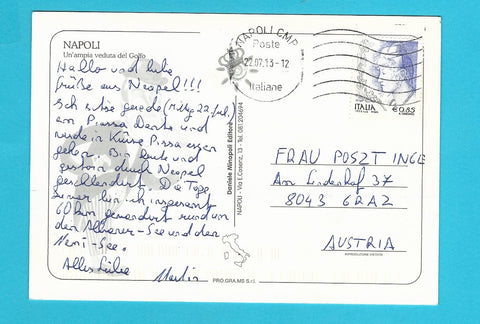 NAPOLI
Un'ampia veduta del Golfo
Hallo und liebe
Grüße aus Neapel!!!
Ich sitze gerade (Mittag 22. Juli)
am Piazza Dante und
werde in Kürze Pizza essen
gehen. Bin heute und
gestern durch Neapel
geschlendert. Die Tage
zuvor bin ich insgesamt
60 km gewandert rund um
den Albaner-See und den
Nemi-See.
Alles Liebe
Martin
Daniele Ninapoli Editore
NAPOLI - Via E. Cosenz, 13 - Tel. 081/204694
PRO.GRA MS S.r.l.
NAPOLI CMP
Poste
22.07.13 - 12
Italiane
ITALIA
€ 0,85
FRAU POSZT INGE
Am Lindenhof 37
8043 GRAZ
AUSTRIA
RIPRODUZIONE VIETATA